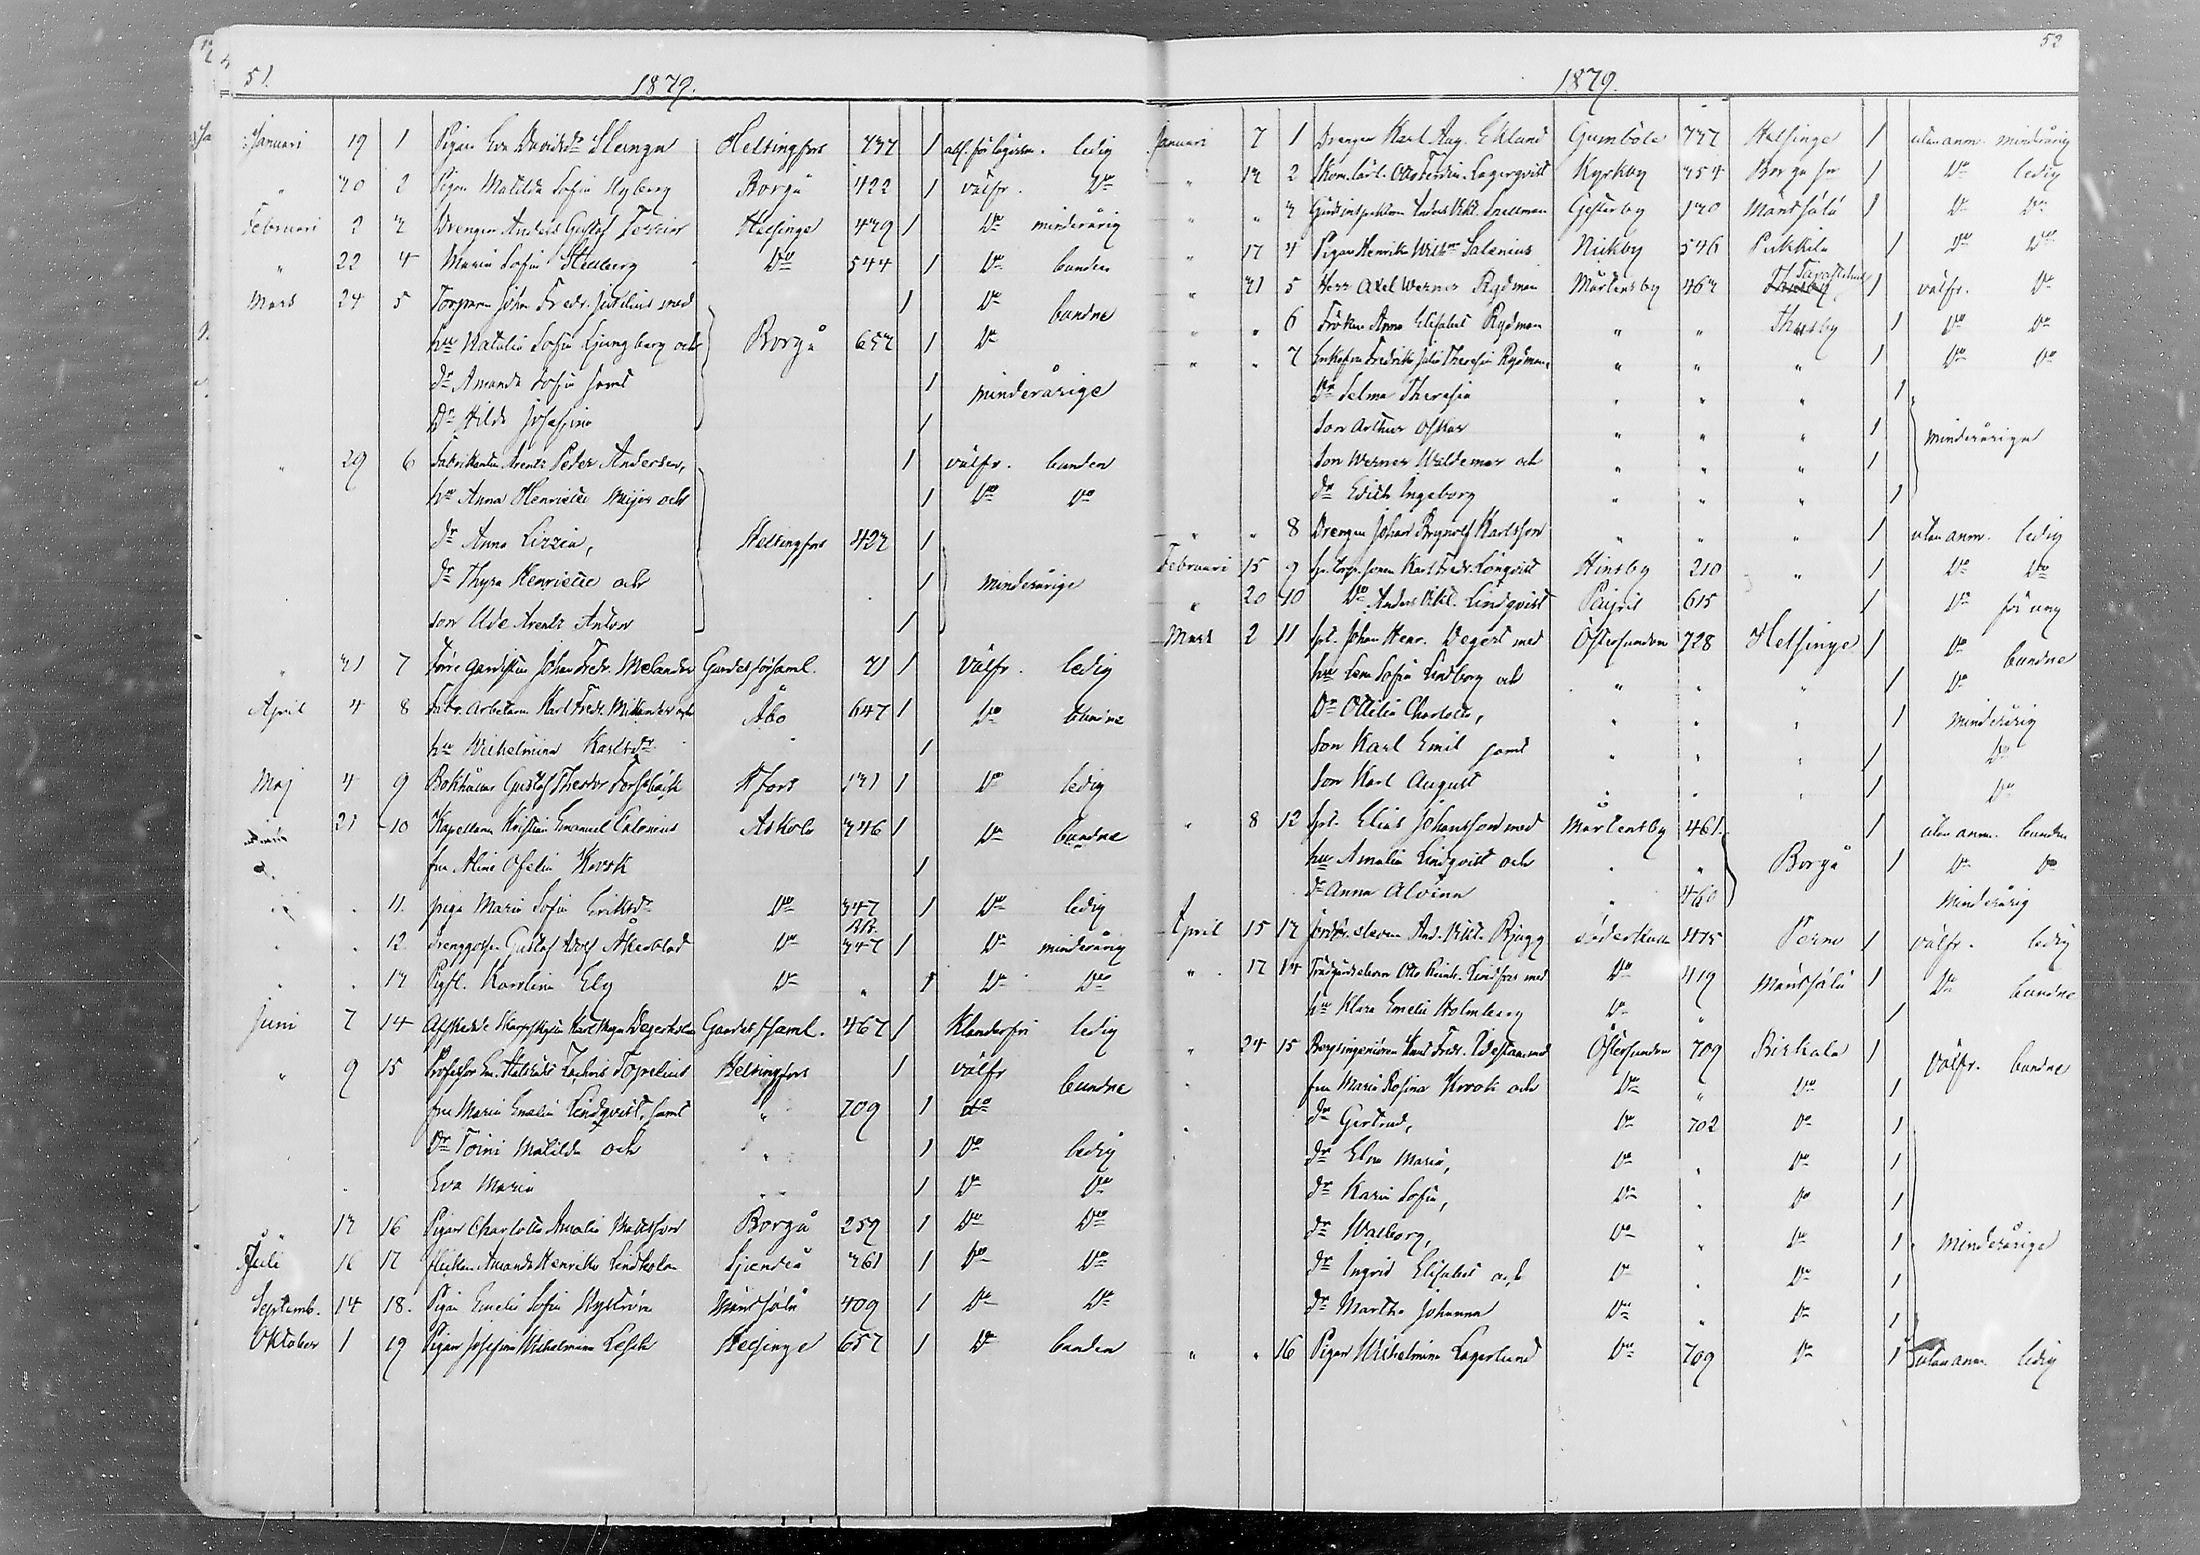 51.
1879.
Januari 19 1 Pigan Eva Davidsdr Slanga Helsingfors 1 ledig
" 30 2 Pigan Matilda Sofia Nyberg Borgå 422 1 välfr. Do
Februari 2 3 Drengen Anders Gustaf Helsinge 439 1 Do minderårig
" 22 4 Maria Sofia Do 544 1 Do bunden
Mars 24 5 Torparen Johan Fredr. med 1 Do bundne
hu Natalia Sofia Ljungberg och Borgå 653 1 Do
dr Amanda Sofia samt 1 minderårige
Dr Hilda Josefina 1
" 29 6 Fabrikanten Arentz Peder Andersen, 1 välfr. bunden
hu Anna Henriette Meijer och 1 Do Do
dr Anna Lizzia, Helsingfors 423 1
dr Thyra Henriette och 1 minderårige
son Arentz Anton 1
" 31 7 Förre gardisten Johan Fredr. Melander Gardesförsaml. 31 1 välfr. ledig
April 4 8 Fabr. Arbetaren Karl Fredr. och Åbo 647 1 Do bundne
hu Wilhelmina Karlsdr 1
Maj 4 9 Bokhållar Gustaf Theodor Forsbäck Hfors 131 1 Do ledig
21 10 Kapellanen Kristian Emanuel Calonius Askola 346 1 Do bundne
fru Alina Ofelia Krook 1
" 11. piga Maria Sofia Eriksdr Do 347 1 Do ledig
" 12. Drenggosse Gustaf Adolf Åkerblad Do 347 1 Do minderårig
" 13 Pigfl. Karolina Ely Do " 1 Do Do
Juni 7 14 Afskedade Skarpskytten Karl Magn. Degerholm Gardesfsaml. 467 1 Klanderfri ledig
" 9 15 Professor Em. Statsrådet Zachris Topelius Helsingfors 1 välfr bundne
fru Maria Emelia Lindqvist, samt " 709 1 do
Dr Toini Matilda och " 1 Do ledig
Eva Maria " 1 Do Do
" 13 16 Pigan Charlotta Amalia Mattsson Borgå 259 1 Do Do
Juli 16 17 Amanda Henrika Lindholm Sjundeå 361 1 Do Do
Septemb. 14 18. Pigan Emelie Sofia Nyström Mäntsälä 409 1 Do Do
Oktober 1 19 Pigan Josefina Wilhelmina Helsinge 657 1 Do bunden
52
1879.
Januari 7 1 Drengen Karl Aug. Eklund Gumböle 337 Helsinge 1 utan anm. minderårig
" 13 2 Otto Ferdin. Lagerqvist Kyrkby 354 Borgå 1 Do ledig
" " 3 Gårdsinspektoren Anders Vikt. Snellman Gesterby 130 Mäntsälä 1 Do Do
" 17 4 Pigan Henrika Wilhna Salenius Nickby 546 Pukkila 1 Do Do
" 31 5 Herr Axel Werner Rydman Mårtensby 463 Tavastehus 1 välfr. Do
" " 6 Fröken Anna Elisabet Rydman " " Thusby 1 Do Do
" " 7 Enkefru Fredrika Julia Theresia Rydman " " " 1 Do Do
Dr Selma Theresia " " " 1
Son Arthur Oskar " " " 1 minderåriga
Son Werner Waldemar och " " " 1
dr Edith Ingeborg " " " 1
" " 8 Drengen Johan Brynolf Karlsson " " " 1 utan anm. ledig
Februari 15 9 Karl Fredr. Lönqvist Hinsby 210 " 1 Do Do
" 20 10 Do Anders Vikt. Lindqvist 615 1 Do för ung
Mars 2 11 Johan Henr. Degert med Östersundom 728 Helsinge 1 Do bundne
hu Lena Sofia Lindberg och " " " 1 Do
Dr Ottilia Charlotta, " " " 1 minderårig
Son Karl Emil samt " " " 1 Do
Son Karl August " " " 1 Do
" 8 12 Elias Johansson med Mårtensby 461. 1 utan anm. bunden
hu Amalia Lindqvist och " " Borgå 1 Do Do
dr Anna Alvina " 460 minderårig
April 15 13 And. Vikt. Rjugg Söderkulla 415 Perno 1 välfr. ledig
" 17 14 Trädgårdseleven Otto Reinh. Lindfors med Do 419 Mäntsälä 1 Do bundne
hu Klara Emelia Holmberg Do " 1
" 24 15 Bergsingeniören Knut Fredr. med Östersundom 709 Birkala 1 välfr. bundne
fru Maria Rosina Krook och Do " Do 1
dr Gertrud, Do 702 Do 1
dr Elna Maria, Do " Do 1
dr Karin Sofia, Do " Do 1
dr Walborg, Do " Do 1 minderårige
dr Ingrid Elisabet och Do " Do 1
dr Martha Johanna Do " Do 1
" " 16 Pigan Wilhelmina Lagerlund Do 709 Do 1 utan anm. ledig